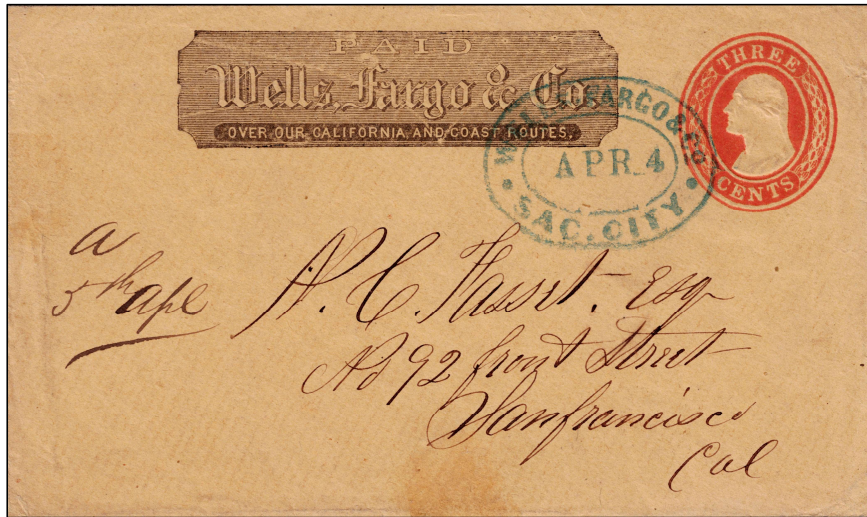 PAID
Wells, Fargo & Co.
OVER OUR CALIFORNIA AND COAST ROUTES.
THREE
CENTS
WELLS, FARGO & CO.
APR 4
SAC. CITY
a
5th apl
N. C. Fasset. Esq
No 92 front Street
Sanfrancisco
Cal